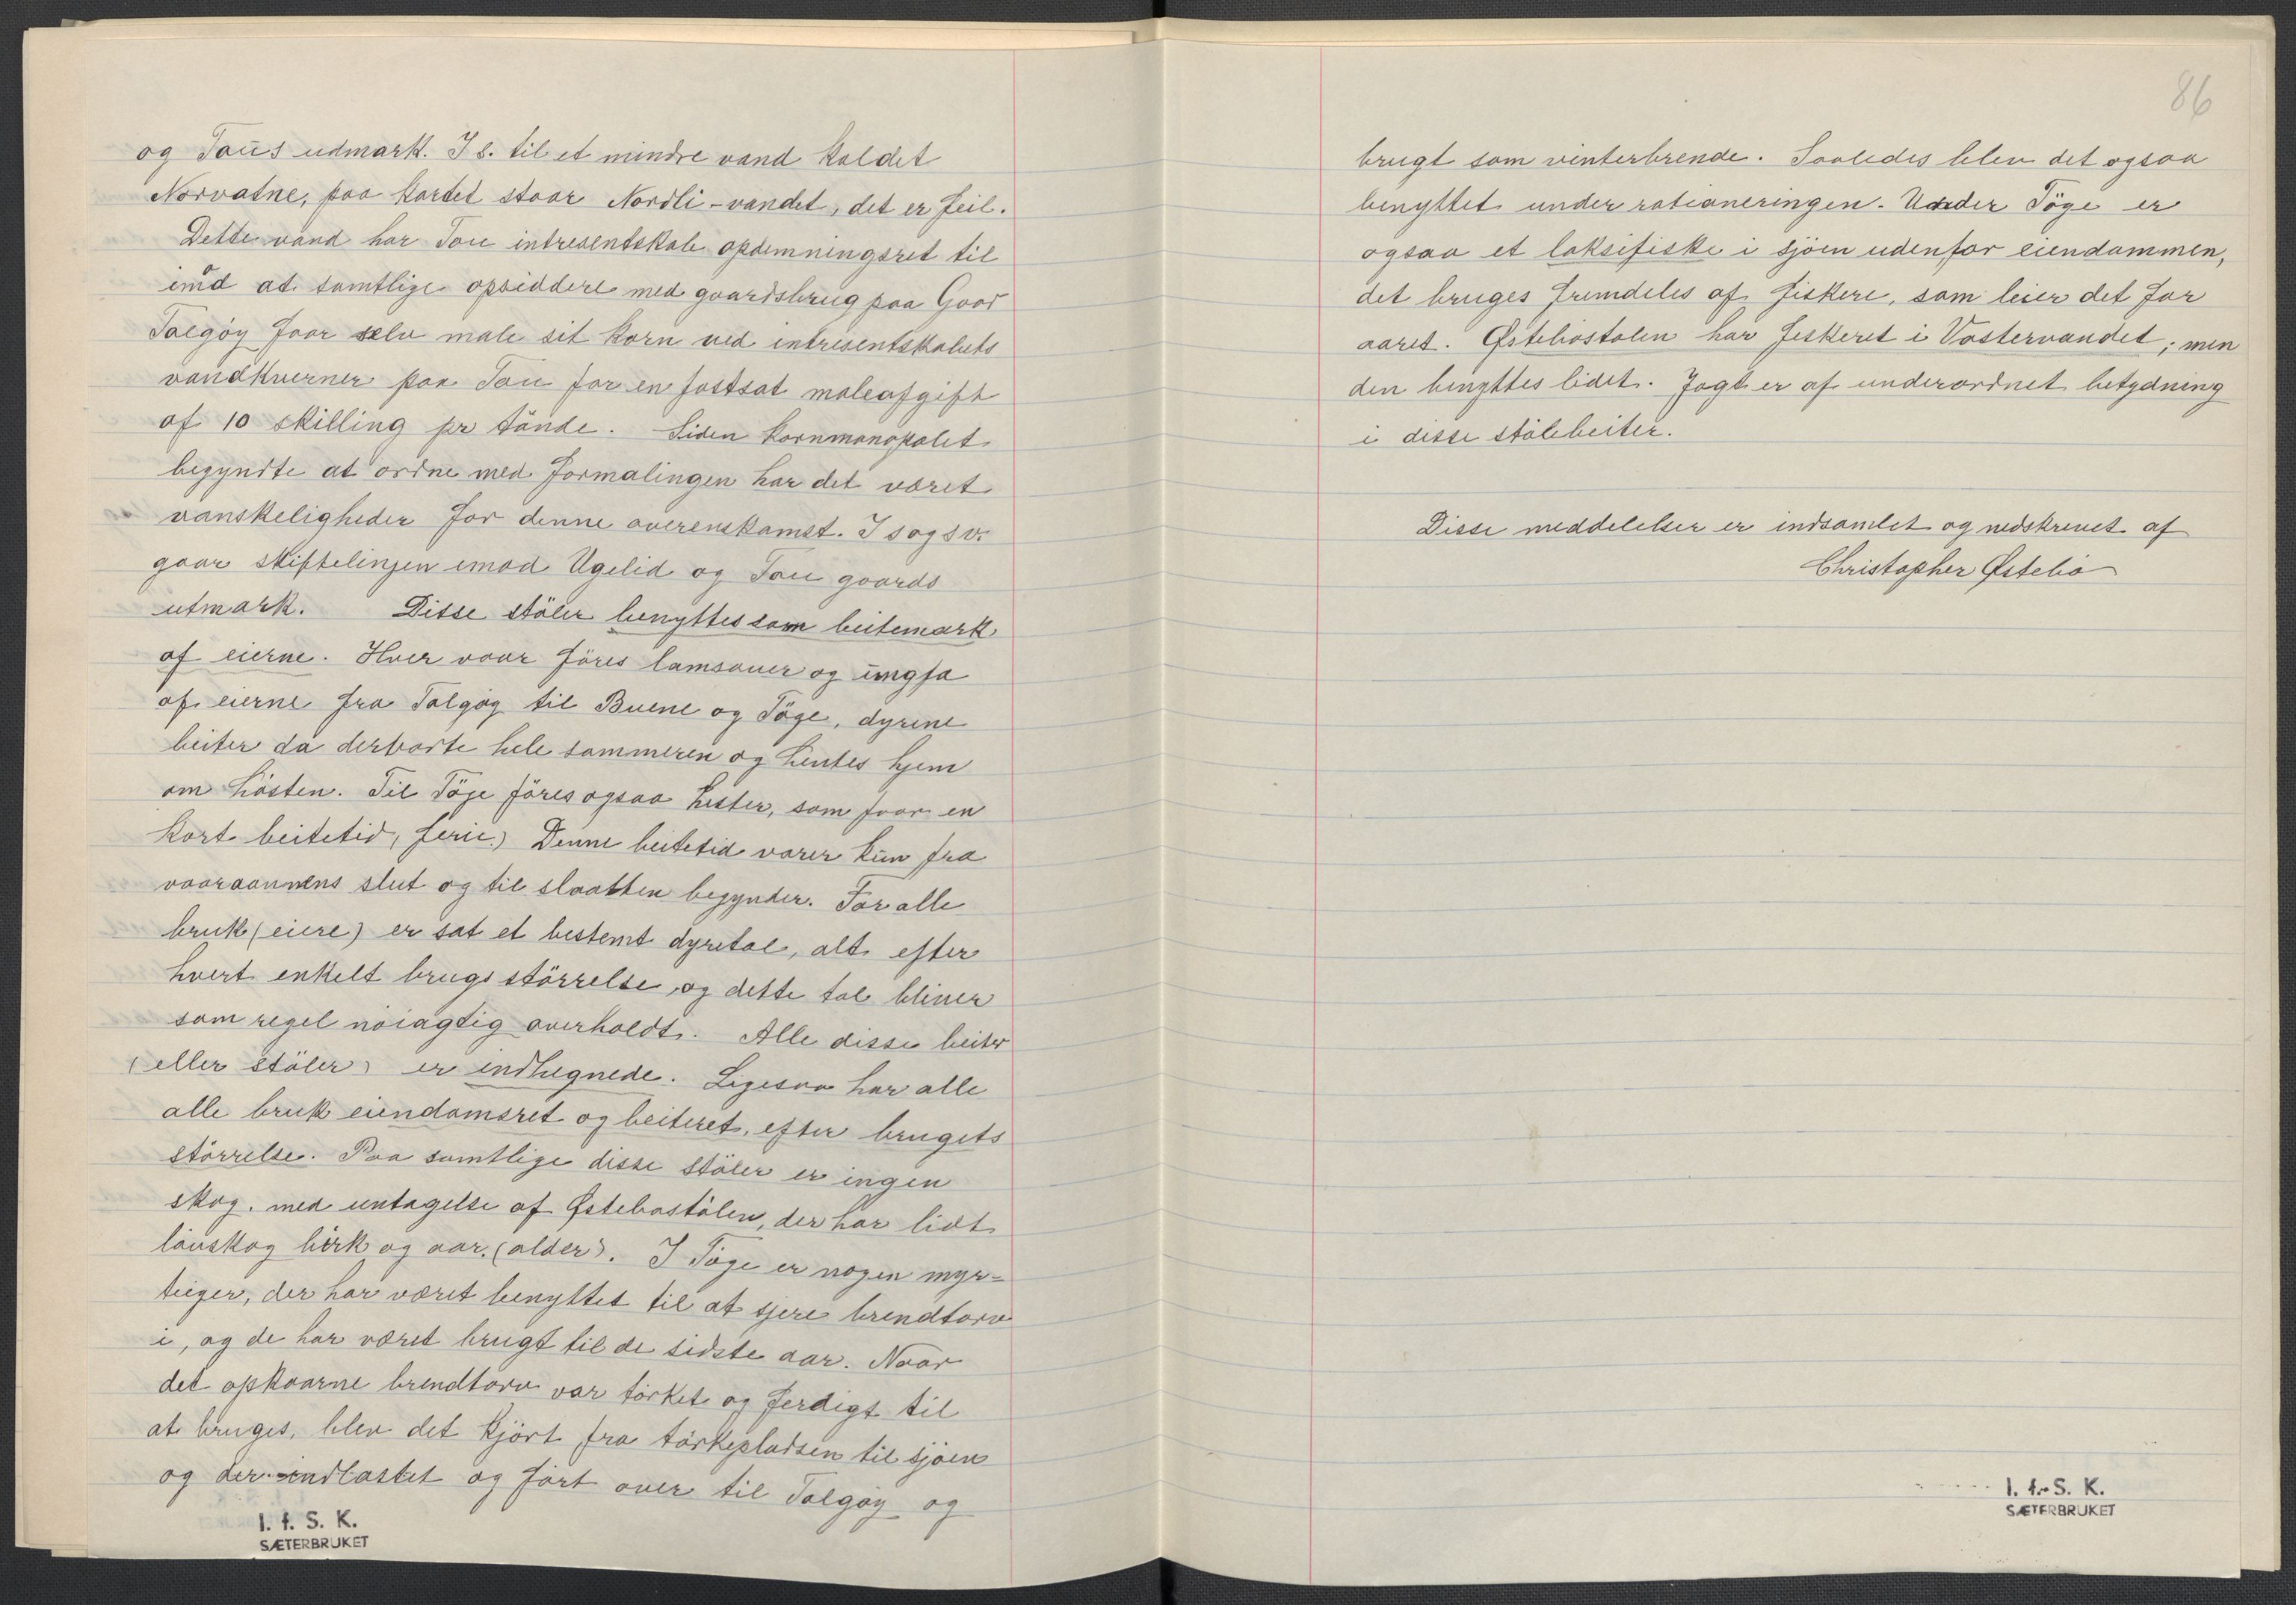 og Taus udmark. I s. til et mindre vand kaldet
Norvatne, paa kartet staar Nordli-vandet, det er feil.
Dette vand har Tau intresentskab opdemningsret til
imod at samtlige opsiddere med gaardsbrug paa Gaard
Talgøy faar selv male sit korn ved intresentskabets
vandkverner paa Tau for en fastsat maleafgift
af 10 skilling pr tønde. Siden kornmonopolet
begyndte at ordne med formalingen har det været
vanskeligheder for denne overenskomst. I s og sv.
gaar skiftelinjen imod Ugelid og Tau gaards
utmark. Disse støler benyttes som beitemark
af eierne. Hver vaar føres lamsauer og ungfa
af eierne fra Talgøy til Buene og Tøge, dyrene
beiter da derborte hele sommeren og hentes hjem
om høsten. Til Tøge føres ogsaa hester, som faar en
kort beitetid, (ferie.) Denne beitetid varer kun fra
vaaraannens slut og til slaatten begynder. For alle
bruk (eiere) er sat et bestemt dyretal, alt efter
hvert enkelt brugs størrelse, og dette tal bliver
som regel nøiagtig overholdt. Alle disse beiter
(eller støler) er indhegnede. Ligesaa har alle
alle bruk eiendomsret og beiteret, efter brugets
størrelse. Paa samtlige disse støler er ingen
skog, med untagelse af Østebøstølen, der har lidt
løvskog birk og aar. (alder). I Tøge er nogen myr=
teiger, der har været benyttet til at sjere brendtorv
i, og de har været brugt til de sidste aar. Naar
det opskaarne brendtorv var tørket og ferdigt til
at bruges, blev det kjørt fra tørkepladsen til sjøen
og der indlastet og ført over til Talgøy og
I. f. S. K.
SÆTERBRUKET
86
brugt som vinterbrende. Saaledes blev det ogsaa
benyttet under rationeringen. Under Tøge er
ogsaa et laksefiske i sjøen udenfor eiendommen,
det bruges fremdeles af fiskere, som leier det for
aaret. Østebøstølen har fiskeret i Vostervandet; men
den benyttes lidet. Jagt er af underordnet betydning
i disse stølebeiter.
Disse meddelelser er indsamlet og nedskrevet af
Christopher Østebø
I. f. S. K.
SÆTERBRUKET